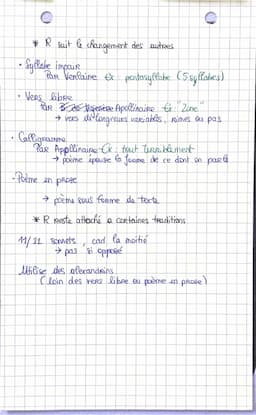 * R suit le changement des autres
• Syllabe impair
Par Verlaine Ex : pentasyllabe (5 syllabes)
• Vers libre
Par Apollinaire Ex "Zone"
→ vers de longueurs variables, rimes ou pas
• Calligramme
Par Appolinaire Ex : tout
→ poème épouse la forme de ce dont on parle
• Poème en prose
→ poème sous forme de texte
* R reste attaché a certaines traditions
11/22 sonnets, cad la moitié
→ pas si opposé
Utilise des alexandrins
(loin des vers libre ou poème en prose)